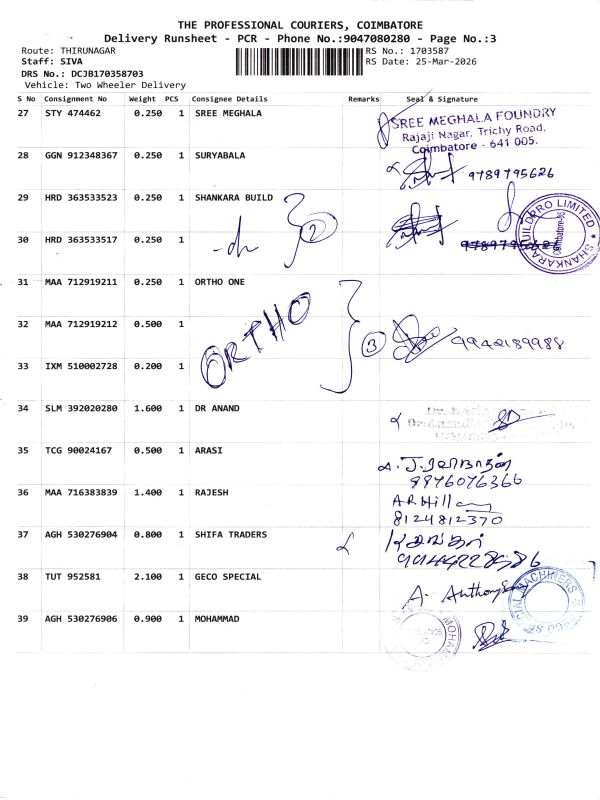 THE PROFESSIONAL COURIERS, COIMBATORE
Delivery Runsheet - PCR - Phone No.:9047080280 - Page No.:3
Route: THIRUNAGAR RS No.: 1703587
Staff: SIVA RS Date: 25-Mar-2026
DRS No.: DCJB170358703
Vehicle: Two Wheeler Delivery
S No Consignment No Weight PCS Consignee Details Remarks Seal & Signature
27 STY 474462 0.250 1 SREE MEGHALA
SREE MEGHALA FOUNDRY
Rajaji Nagar, Trichy Road,
Coimbatore - 641 005.
28 GGN 912348367 0.250 1 SURYABALA 9789795626
29 HRD 363533523 0.250 1 SHANKARA BUILD
2
30 HRD 363533517 0.250 1 9789795626
SHANKARA BUILDPRO LIMITED
31 MAA 712919211 0.250 1 ORTHO ONE
ORTHO
32 MAA 712919212 0.500 1
3 9942189988
33 IXM 510002728 0.200 1
34 SLM 392020280 1.600 1 DR ANAND
35 TCG 90024167 0.500 1 ARASI
9976076366
36 MAA 716383839 1.400 1 RAJESH
8124812370
37 AGH 530276904 0.800 1 SHIFA TRADERS
38 TUT 952581 2.100 1 GECO SPECIAL
A. Anthony
39 AGH 530276906 0.900 1 MOHAMMAD